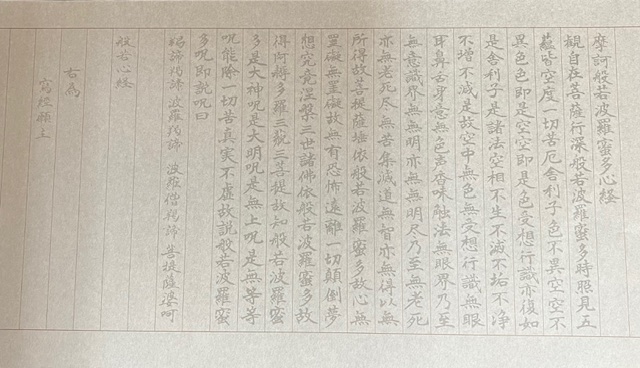 摩訶般若波羅蜜多心経
観自在菩薩行深般若波羅蜜多時照見五
蘊皆空度一切苦厄舎利子色不異空空不
異色色即是空空即是色受想行識亦復如
是舎利子是諸法空相不生不滅不垢不浄
不増不減是故空中無色無受想行識無眼
耳鼻舌身意無色声香味触法無眼界乃至
無意識界無無明亦無無明尽乃至無老死
亦無老死尽無苦集滅道無智亦無得以無
所得故菩提薩埵依般若波羅蜜多故心無
罣礙無罣礙故無有恐怖遠離一切顛倒夢
想究竟涅槃三世諸佛依般若波羅蜜多故
得阿耨多羅三藐三菩提故知般若波羅蜜
多是大神呪是大明呪是無上呪是無等等
呪能除一切苦真実不虚故説般若波羅蜜
多呪即説呪曰
羯諦羯諦 波羅羯諦 波羅僧羯諦 菩提薩婆呵
般若心経
右為
寫経願主